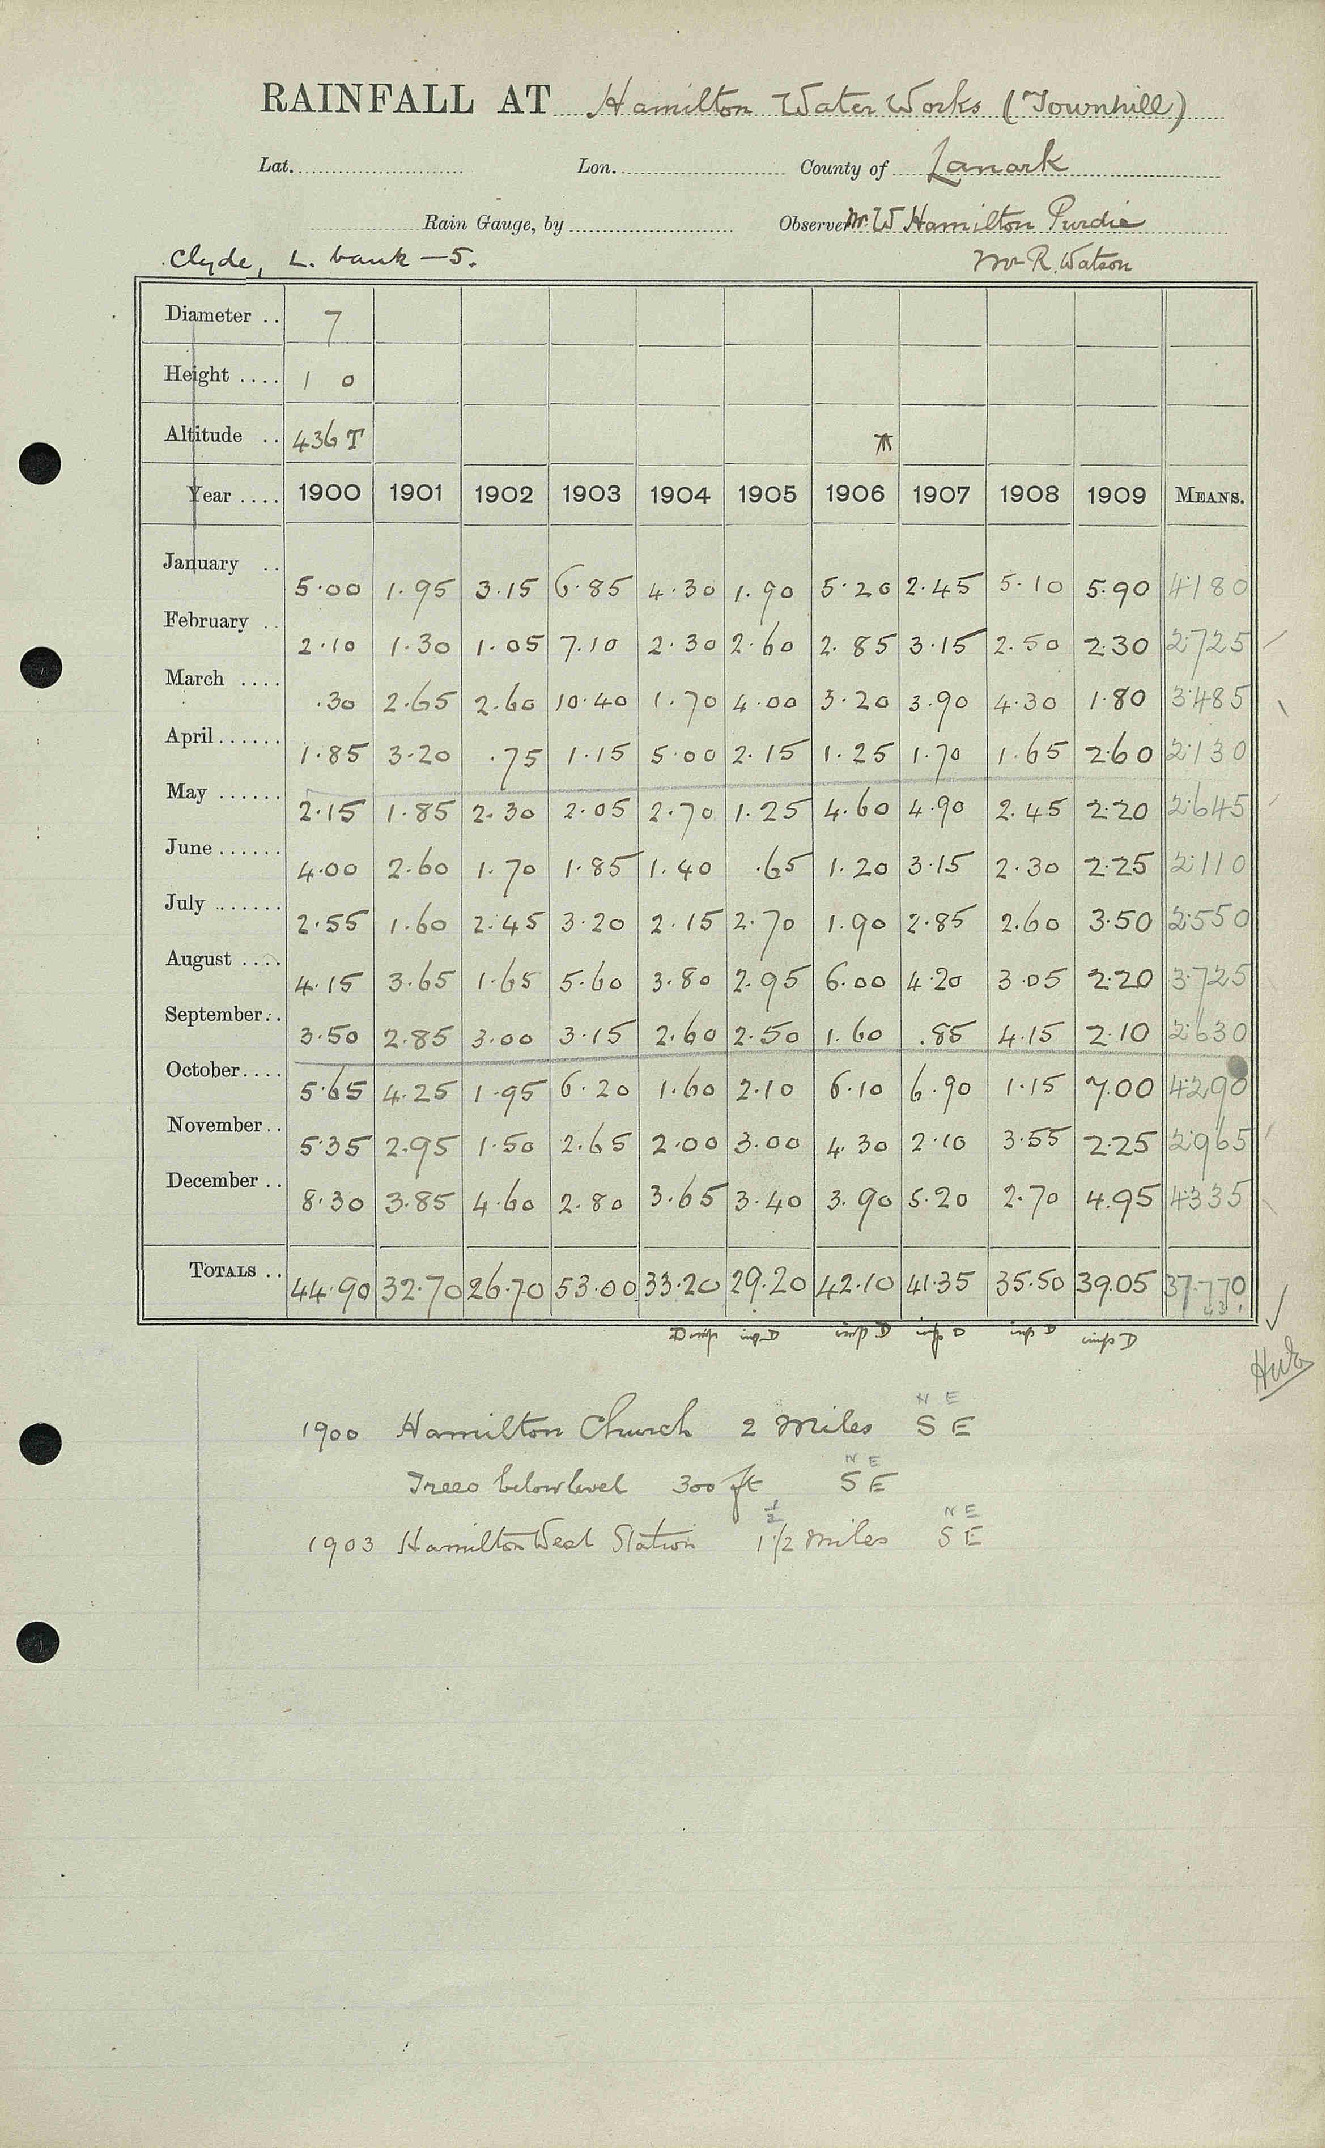 RAINFALL AT Hamilton Water Works (Townhill)
Lat. Lon. County of Lanark
Rain Gauge, by Observer Mr W Hamilton Purdie
Clyde, L. bank — 5. Mr R. Watson
Diameter .. 7
Height .... 1 0
Altitude .. 436 T
Year .... 1900 1901 1902 1903 1904 1905 1906 1907 1908 1909 MEANS.
January .. 5.00 1.95 3.15 6.85 4.30 1.90 5.20 2.45 5.10 5.90 4.180
February .. 2.10 1.30 1.05 7.10 2.30 2.60 2.85 3.15 2.50 2.30 2.725
March .... .30 2.65 2.60 10.40 1.70 4.00 3.20 3.90 4.30 1.80 3.485
April ...... 1.85 3.20 .75 1.15 5.00 2.15 1.25 1.70 1.65 2.60 2.130
May ...... 2.15 1.85 2.30 2.05 2.70 1.25 4.60 4.90 2.45 2.20 2.645
June ...... 4.00 2.60 1.70 1.85 1.40 .65 1.20 3.15 2.30 2.25 2.110
July ....... 2.55 1.60 2.45 3.20 2.15 2.70 1.90 2.85 2.60 3.50 2.550
August .... 4.15 3.65 1.65 5.60 3.80 2.95 6.00 4.20 3.05 2.20 3.725
September .. 3.50 2.85 3.00 3.15 2.60 2.50 1.60 .85 4.15 2.10 2.630
October .... 5.65 4.25 1.95 6.20 1.60 2.10 6.10 6.90 1.15 7.00 4.290
November .. 5.35 2.95 1.50 2.65 2.00 3.00 4.30 2.10 3.55 2.25 2.965
December .. 8.30 3.85 4.60 2.80 3.65 3.40 3.90 5.20 2.70 4.95 4.335
TOTALS .. 44.90 32.70 26.70 53.00 33.20 29.20 42.10 41.35 35.50 39.05 37.770
N E
1900 Hamilton Church 2 miles S E
N E
Trees below level 300 ft S E
1/2 N E
1903 Hamilton West Station 1 1/2 miles S E